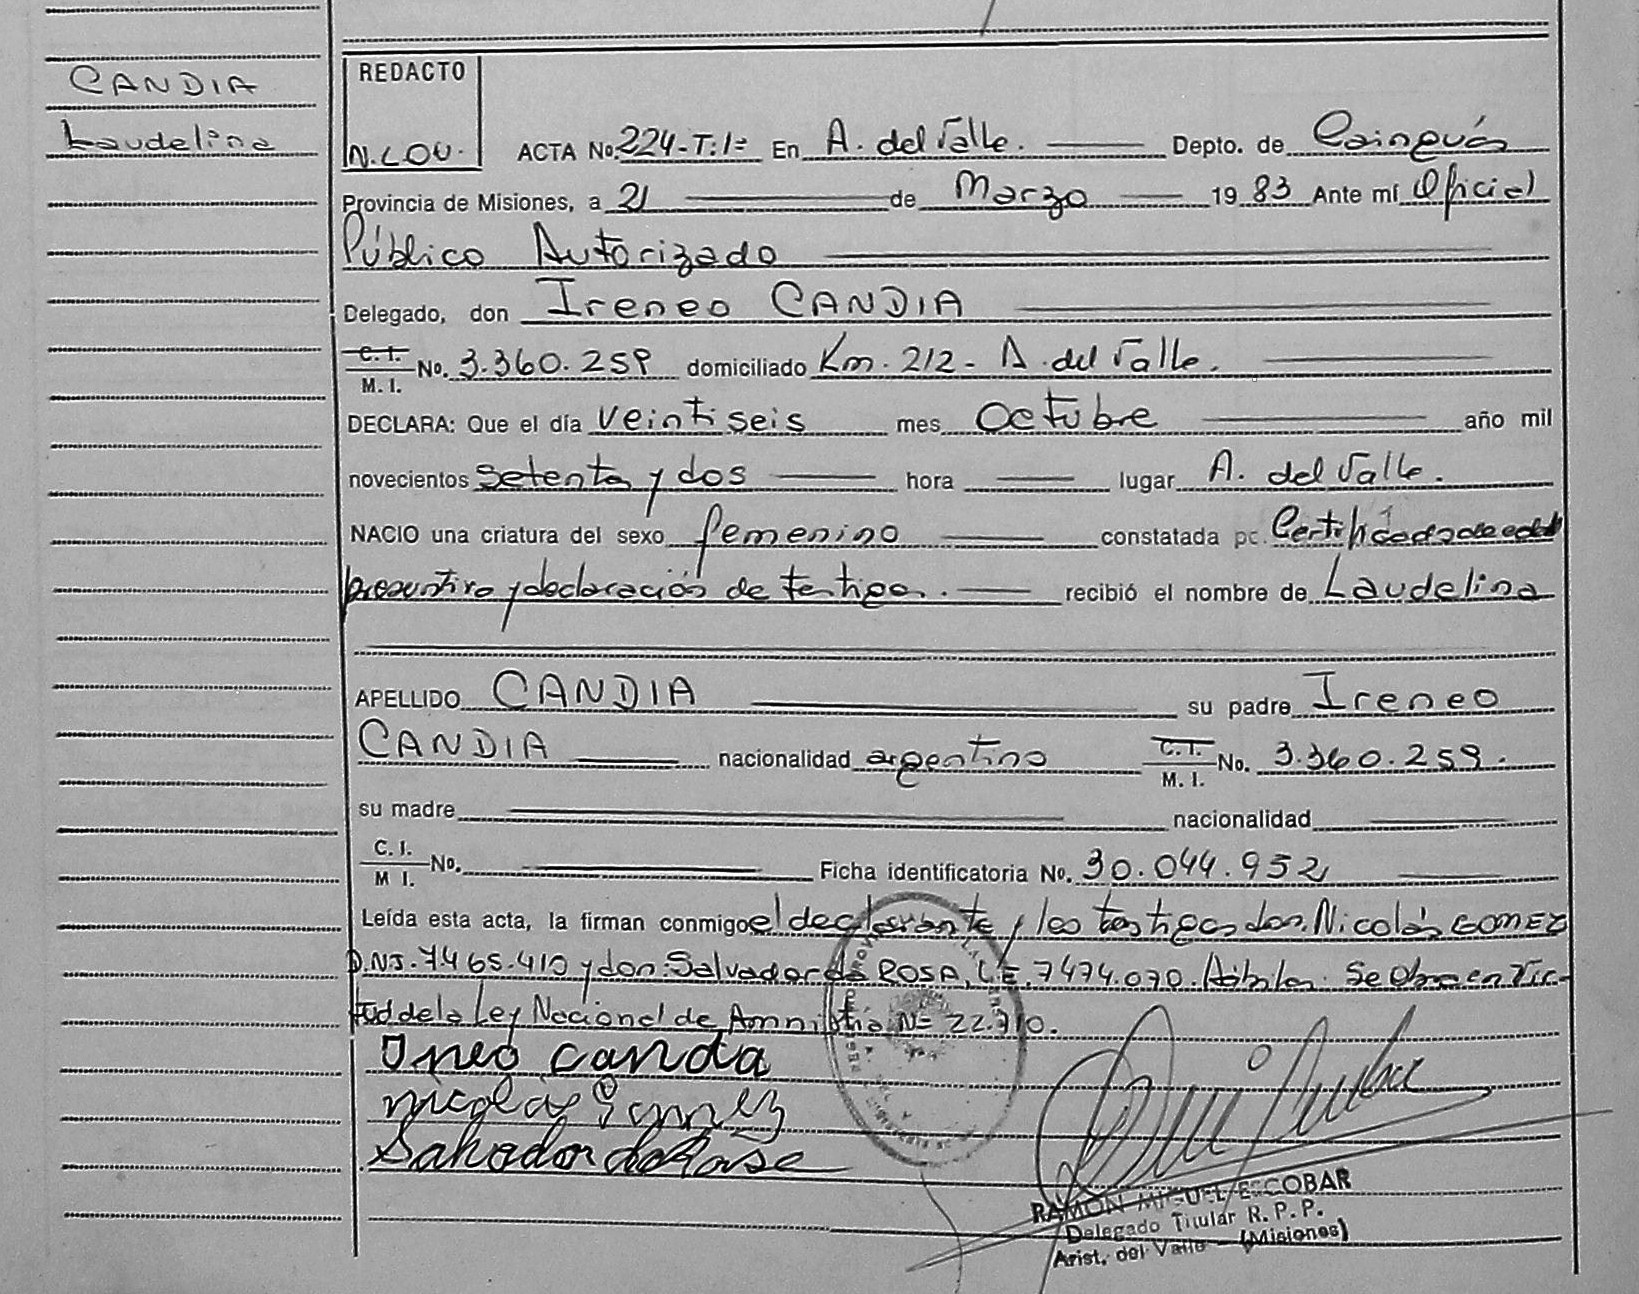 CANDIA
Laudelina
REDACTO
N.LOV.
ACTA No. 224-T:1= En A. del Valle. Depto. de Cainguás
Provincia de Misiones, a 21 de Marzo 19 83 Ante mí Oficial
Público Autorizado
Delegado, don Ireneo CANDIA
C. I. / M. I. No. 3.360.259 domiciliado Km. 212- A. del Valle.
DECLARA: Que el día veintiseis mes octubre año mil
novecientos setenta y dos hora lugar A. del Valle.
NACIO una criatura del sexo femenino constatada po. Certificado de edad
presuntiva y declaración de testigos. recibió el nombre de Laudelina
APELLIDO CANDIA su padre Ireneo
CANDIA nacionalidad argentino C.I. / M. I. No. 3.360.259.
su madre nacionalidad
C. I. / M I. No. Ficha identificatoria No. 30.044.952
Leída esta acta, la firman conmigo el declarante y los testigos don. Nicolás GOMEZ
D.N.I. 7465.410 y don. Salvador da ROSA, L.E. 7474.070. Hábiles. Se Obra en Vir-
tud de la Ley Nacional de Amnistía Nº 22.710.
Ireneo candia
nicolas Gomez
Salvador da Rosa
RAMON MIGUEL ESCOBAR
Delegado Titular R. P. P.
Arist. del Valle - (Misiones)